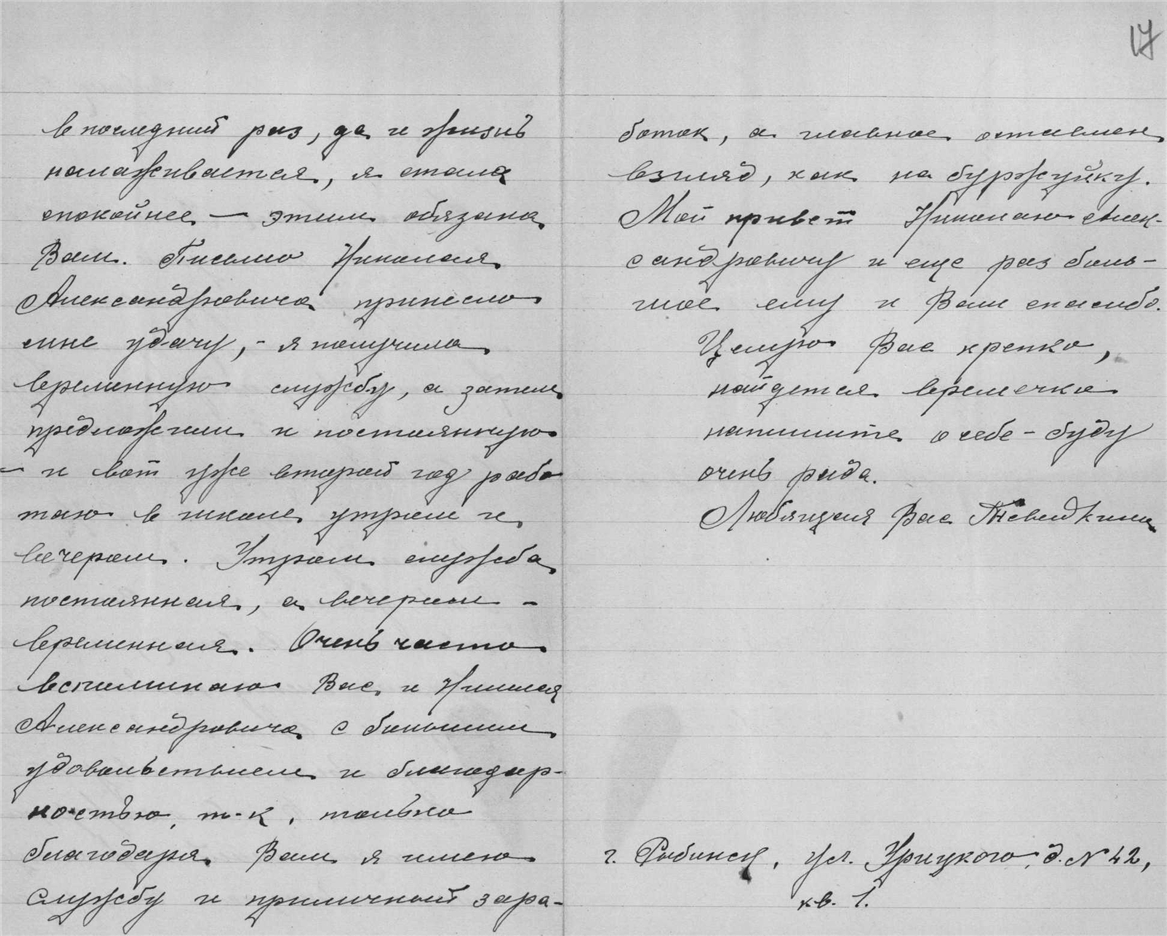 17
в последний раз, да и жизнь
налаживается, я стала
спокойнее — этим обязана
Вам. Письмо Николая
Александровича принесло
мне удачу, - я получила
временную службу, а затем
предложили и постоянную
— и вот уже второй год рабо
таю в школе утром и
вечером. Утром служба
постоянная, а вечером -
временная. Очень часто
вспоминаю Вас и Николая
Александровича с большим
удовольствием и благодар-
ностью, т-к, только
благодаря Вам я имею
службу и приличный зара-
боток, а главное оставлен
взгляд, как на буржуйку.
Мой привет Николаю Алек-
сандровичу и еще раз боль-
шое ему и Вам спасибо.
Целую Вас крепко,
найдется времечко
напишите о себе - буду
очень рада.
Любящая Вас
г. Рыбинск, ул. Урицкого, д. № 42,
кв. 1.